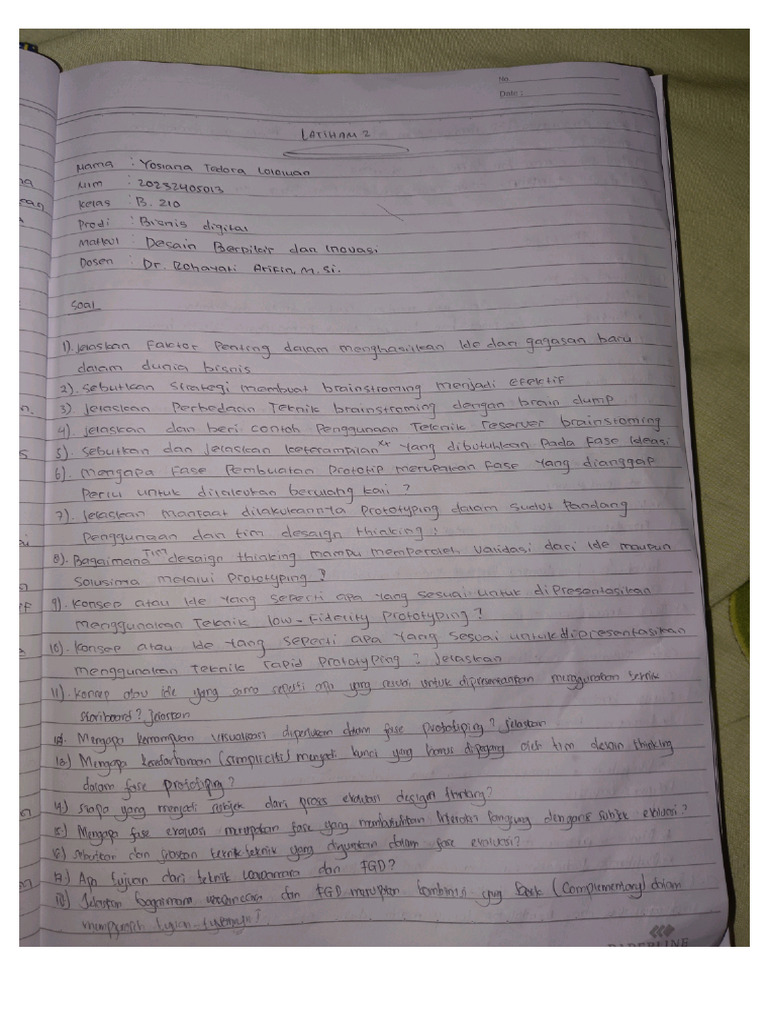 No
Date :
LATIHAM 2
Nama : Yosiana Tedora Lolowan
Nim : 20232405013
Kelas : B. 210
Prodi : Bisnis digital
Matkul : Desain Berpikir dan Inovasi
Dosen : Dr. Rohayati Arifin, M. Si.
Soal
1). Jelaskan faktor Penting dalam menghasilkan Ide dan gagasan baru
dalam dunia bisnis
2). Sebutkan strategi membuat brainstroming menjadi efektif
3) Jelaskan Perbedaan Teknik brainstroming dengan brain dump
4). Jelaskan dan beri contoh Penggunaan Teknik reserver brainstoming
5). Sebutkan dan Jelaskan keterampilan yang dibutuhkan Pada fase Ideasi
6). mengapa Fase Pembuatan Prototip merupakan fase yang dianggap
Perlu untuk dilakukan berulang kali ?
7). Jelaskan manfaat dilakukannya Prototyping dalam sudut Pandang
Penggunaan dan tim desaign thinking :
8). Bagaimana Tim desaign thinking mampu memperoleh validasi dari Ide maupun
Solusima melalui Prototyping ?
9). Konsep atau Ide yang seperti apa yang sesuai untuk diPresentasikan
menggunakan Teknik low-Fidelity Prototyping ?
10). Konsep atau Ide yang seperti apa yang sesuai untuk dipresentasikan
menggunakan Teknik rapid Prototyping ? Jelaskan
11). Konsep atau ide yang seperti apa yang sesuai untuk dipresentasikan menggunakan teknik
Storiboard? Jelaskan
12. Mengapa kemampuan visualisasi diperlukan dalam fase prototiping? Jelaskan
13) Mengapa kesederhanaan (simpliciti) menjadi kunci yang harus dipegang oleh tim desain thinking
dalam fase prototiping?
14) Siapa yang menjadi subjek dari proses evaluasi design thinking?
15) Mengapa fase evaluasi merupakan fase yang membutuhkan interaksi langsung dengan subjek evaluasi?
16) Sebutkan dan jelaskan teknik-teknik yang digunakan dalam fase evaluasi?
17) Apa tujuan dari teknik wawancara dan FGD?
18) Jelaskan bagaimana wawancara dan FGD merupakan kombinasi yang (complementary) dalam
PAPERLINE